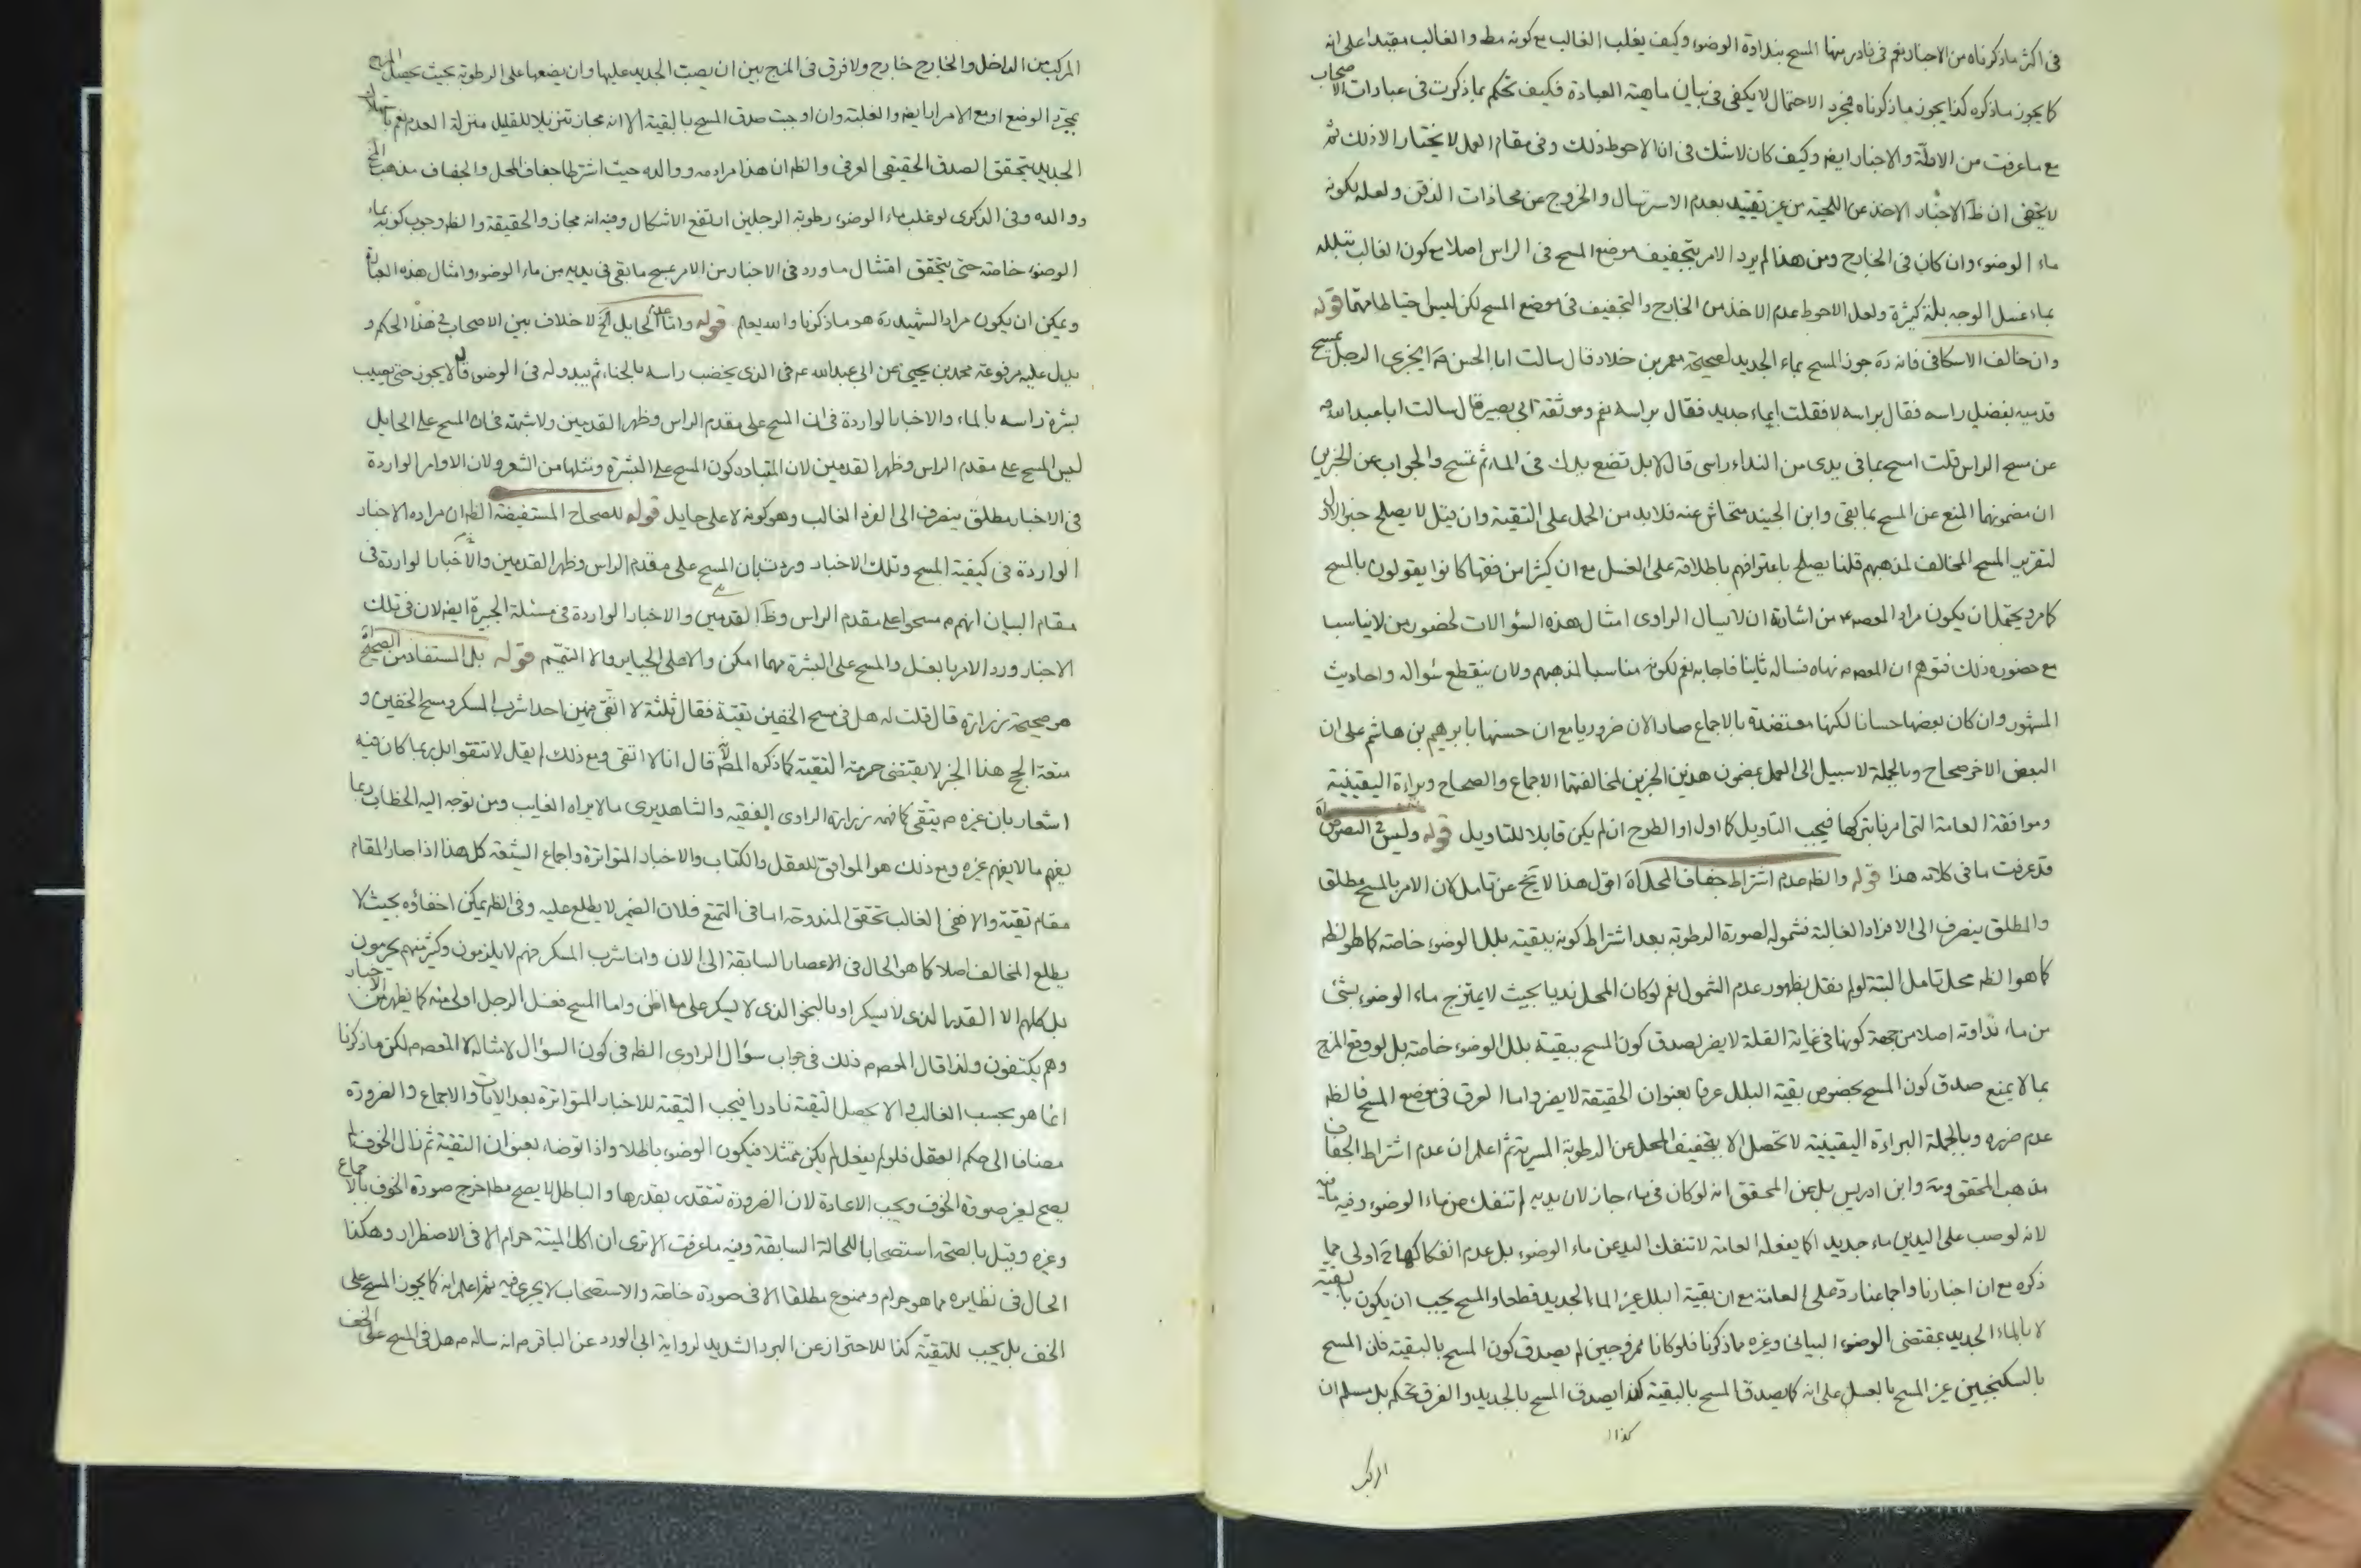 فى اكثر ماذكرناه من الاخبار نعم فى نادر منها المسح بنداوة الوضوء وكيف يغلب الغالب مع كونه مط والغالب مقيدا على انه
كما يجوز ماذكره كذا يجوز ماذكرناه فمجرد الاحتمال لا يكفى فى بيان ماهية العبادة فكيف تحكم بما ذكرت فى عبارات الاصحاب
مع ما عرفت من الادلة والاخبار ايضا وكيف كان لاشك فى ان الاحوط ذلك وفى مقام العمل لا يختار الا ذلك ثم
لا يخفى ان ظ الاخبار الاخذ عن اللحية من غير تقييد بعدم الاسترسال والخروج عن محاذات الذقن ولعله لكونه
ماء الوضوء وان كان فى الخارج ومن هذا لم يرد الامر بتجفيف موضع المسح فى الراس اصلا مع كون الغالب تبلله
بماء غسل الوجه بلة كثيرة ولعل الاحوط عدم الاخذ من الخارج والتجفيف فى موضع المسح لكن ليس احتياطا مهما قوله
وان خالف الاسكافى فانه ره جوز المسح بماء الجديد لصحيحة معمر بن خلاد قال سالت ابا الحسن م ايجزى الرجل يمسح
قدميه بفضل راسه فقال براسه لا فقلت ابماء جديد فقال براسه نعم وموثقة ابى بصير قال سالت ابا عبد الله م
عن مسح الراس قلت امسح بما فى يدى من النداء راسى قال لا بل تضع يدك فى الماء ثم تمسح والجواب عن الخبرين
ان مضمونهما المنع عن المسح بما بقى وابن الجنيد متحاش عنه فلا بد من الحمل على التقية وان قيل لا يصلح خبر الاول
لتقرير المسح المخالف لمذهبهم قلنا يصلح باعترافهم باطلاقه على الغسل مع ان كثيرا من فقهائهم كانوا يقولون بالمسح
كما مر ويحتمل ان يكون مراد المعصوم من اشارة ان لا يسال الراوى امثال هذه السؤالات لحضور من لا يناسب
مع حضوره ذلك فتوهم ان المعصوم نهاه فساله ثانيا فاجابه نعم لكونه مناسبا لمذهبهم ولان ينقطع سؤاله واحاديث
المشهور وان كان بعضها حسانا لكنها معتضدة بالاجماع صار الان ضروريا مع ان حسنها بابراهيم بن هاشم على ان
البعض الاخر صحاح وبالجملة لا سبيل الى العمل بمضمون هذين الخبرين لمخالفتهما الاجماع والصحاح وبراءة اليقينية
وموافقة العامة التى امرنا بتركها فيجب التاويل كالاول او الطرح ان لم يكن قابلا للتاويل قوله وليس فى النصوص
قد عرفت ما فى كلامه هذا قوله والظ عدم اشتراط جفاف المحل اه اقول هذا لا يخ عن تامل لان الامر بالمسح مطلق
والمطلق ينصرف الى الافراد الغالبة فشموله لصورة الرطوبة بعد اشتراط كونه ببقية بلل الوضوء خاصة كما هو الظ
كما هو الظ محل تامل البتة لو لم نقل بظهور عدم الشمول نعم لو كان المحل نديا بحيث لا يمتزج ماء الوضوء بشئ
من ماء نداوته اصلا من جهة كونها فى غاية القلة لا يضر لصدق كون المسح ببقية بلل الوضوء خاصة بل لو وقع المزج
بما لا يمنع صدق كون المسح بخصوص بقية البلل عرفا بعنوان الحقيقة لا يضر واما العرق فى موضع المسح فالظ
عدم ضرره وبالجملة البراءة اليقينية لا تحصل الا بتجفيف المحل عن الرطوبة المسرية ثم اعلم ان عدم اشتراط الجفاف
مذهب المحقق وابن ادريس بل عن المحقق انه لو كان فى ماء جاز لان يديه لم تنفك من ماء الوضوء وفيه مافيه
لانه لو صب على اليدين ماء جديد كما يفعله العامة لا تنفك اليد عن ماء الوضوء بل عدم انفكاكها اولى مما
ذكره مع ان اخبارنا واجماعنا ردة على العامة مع ان بقية البلل غير الماء الجديد قطعا والمسح يجب ان يكون بالبقية
لا بالماء الجديد بمقتضى الوضوء البيانى وغيره مما ذكرنا فلو كانا ممزوجين لم يصدق كون المسح بالبقية فان المسح
بالسكنجبين غير المسح بالعسل على انه كما يصدق المسح بالبقية كذا يصدق المسح بالجديد والفرق تحكم بل مسلم ان
كذا
المركب
المركب من الداخل والخارج خارج ولا فرق فى المزج بين ان يصب الجديد عليها وان يضعها على الرطوبة بحيث يحصل المزج
بمجرد الوضع او مع الامرار ايضا والغلبة وان اوجبت صدق المسح بالبقية الا انه مجاز تنزيلا للقليل منزلة العدم نعم باستهلاك
الجديد يتحقق الصدق الحقيقى العرفى والظ ان هذا مراده ووالده حيث اشترطا جفاف المحل والجفاف مذهب
ووالده وفى الذكرى لو غلب ماء الوضوء رطوبة الرجلين ارتفع الاشكال وفيه انه مجاز والحقيقة والظ وجوب كونه بماء
الوضوء خاصة حتى يتحقق امتثال ما ورد فى الاخبار من الامر بمسح ما بقى فى يديه من ماء الوضوء وامثال هذه العبارة
ويمكن ان يكون مراد الشهيد ره هو ماذكرنا والله يعلم قوله واما على الحايل الخ لا خلاف بين الاصحاب فى هذا الحكم و
يدل عليه مرفوعة محمد بن يحيى عن ابى عبد الله عم فى الذى يخضب راسه بالحناء ثم يبدو له فى الوضوء قال لا يجوز حتى يصيب
بشرة راسه بالماء والاخبار الواردة فى ان المسح على مقدم الراس وظهر القدمين ولا شبهة فى ان المسح على الحايل
ليس المسح على مقدم الراس وظهر القدمين لان المتبادر كون المسح على البشرة ومثلها من الشعر ولان الاوامر الواردة
فى الاخبار مطلق ينصرف الى الفرد الغالب وهو كونه لا على حايل قوله للصحاح المستفيضة الظ ان مراده الاخبار
الواردة فى كيفية المسح وتلك الاخبار وردت بان المسح على مقدم الراس وظهر القدمين والاخبار الواردة فى
مقام البيان انهم م مسحوا على مقدم الراس وظ القدمين والاخبار الواردة فى مسئلة الجبيرة ايضا لان فى تلك
الاخبار ورد الامر بالغسل والمسح على البشرة مهما امكن والا فعلى الجباير والا التيمم قوله بل المستفاد من الصحيح
هو صحيحة زرارة قال قلت له هل فى مسح الخفين تقية فقال ثلثة لا اتقى فيهن احدا شرب المسكر ومسح الخفين و
متعة الحج هذا الخبر لا يقتضى حرمة التقية كما ذكره المص لانه قال انا لا اتقى ومع ذلك لم يقل لا تتقوا بل ربما كان فيه
اشعار بان غيره م يتقى كما فهمه زرارة الراوى الفقيه والشاهد يرى ما لا يراه الغايب ومن توجه اليه الخطاب ربما
يفهم ما لا يفهم غيره ومع ذلك هو الموافق للعقل والكتاب والاخبار المتواترة واجماع الشيعة كل هذا اذا صار المقام
مقام تقية والا ففى الغالب تحقق المندوحة اما فى التمتع فلان الضمير لا يطلع عليه وفى الظ يمكن اخفاؤه بحيث لا
يطلع المخالف اصلا كما هو الحال فى الاعصار السابقة الى الان واما شرب المسكر فهم لا يلزمون وكثير منهم يحرمون
بل كلهم الا القدر الذى لا يسكر او بالنحو الذى لا يسكر على ما اظن واما المسح فغسل الرجل اولى منه كما يظهر من الاخبار
وهم يكتفون ولذا قال المعصوم ذلك فى جواب سؤال الراوى الظ فى كون السؤال لامثاله لا المعصوم لكن ماذكرنا
انما هو بحسب الغالب والا يحصل التقية نادرا فيجب التقية للاخبار المتواترة بعد الايات والاجماع والضرورة
مضافا الى حكم العقل فلو لم يفعل لم يكن ممتثلا فيكون الوضوء باطلا واذا توضاء بعنوان التقية ثم زال الخوف لم
يصح لغير صورة الخوف ويجب الاعادة لان الضرورة تتقدر بقدرها والباطل لا يصح مط اخرج صورة الخوف بالاجماع
وغيره وقيل بالصحة استصحابا للحالة السابقة وفيه ما عرفت الا ترى ان اكل الميتة حرام الا فى الاضطرار وهكذا
الحال فى نظايره مما هو حرام وممنوع مطلقا الا فى صورة خاصة والاستصحاب لا يجرى فيه ثم اعلم انه كما يجوز المسح على
الخف بل يجب للتقية كذا للاحتراز عن البرد الشديد لرواية ابى الورد عن الباقر م انه ساله م هل فى المسح على الخف